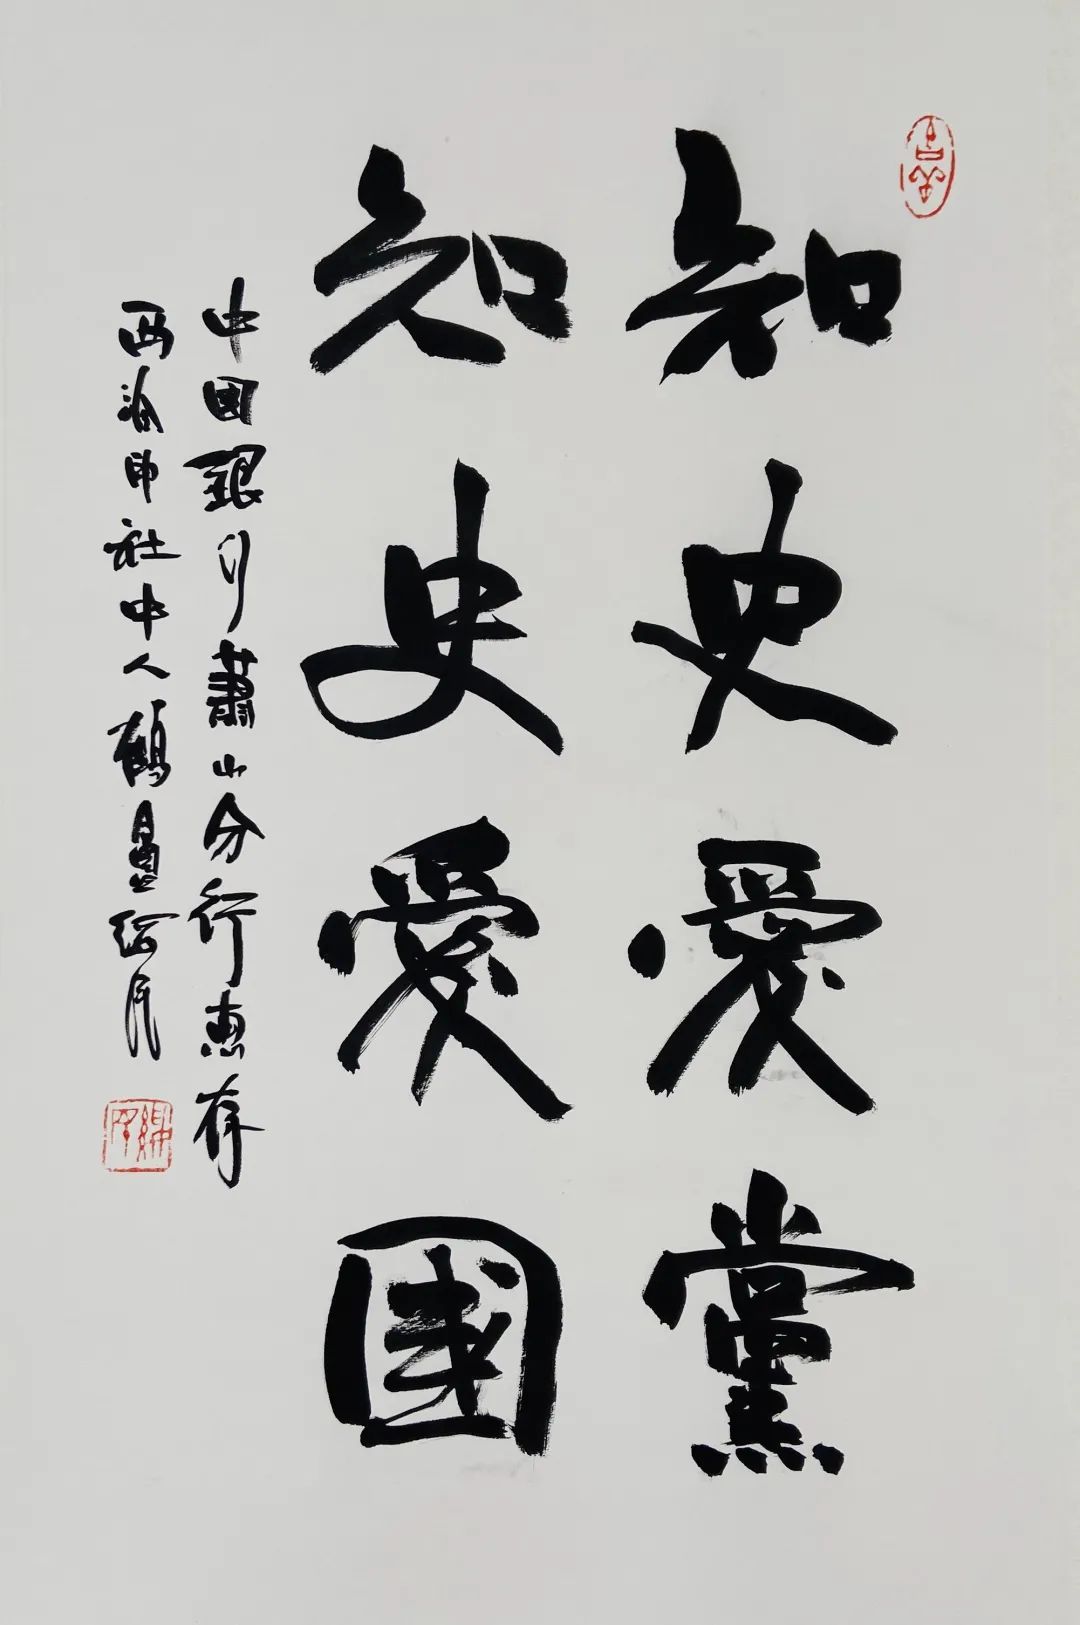 吉羊
知史愛黨
知史愛國
中國銀行蕭山分行惠存
西泠印社中人鶴